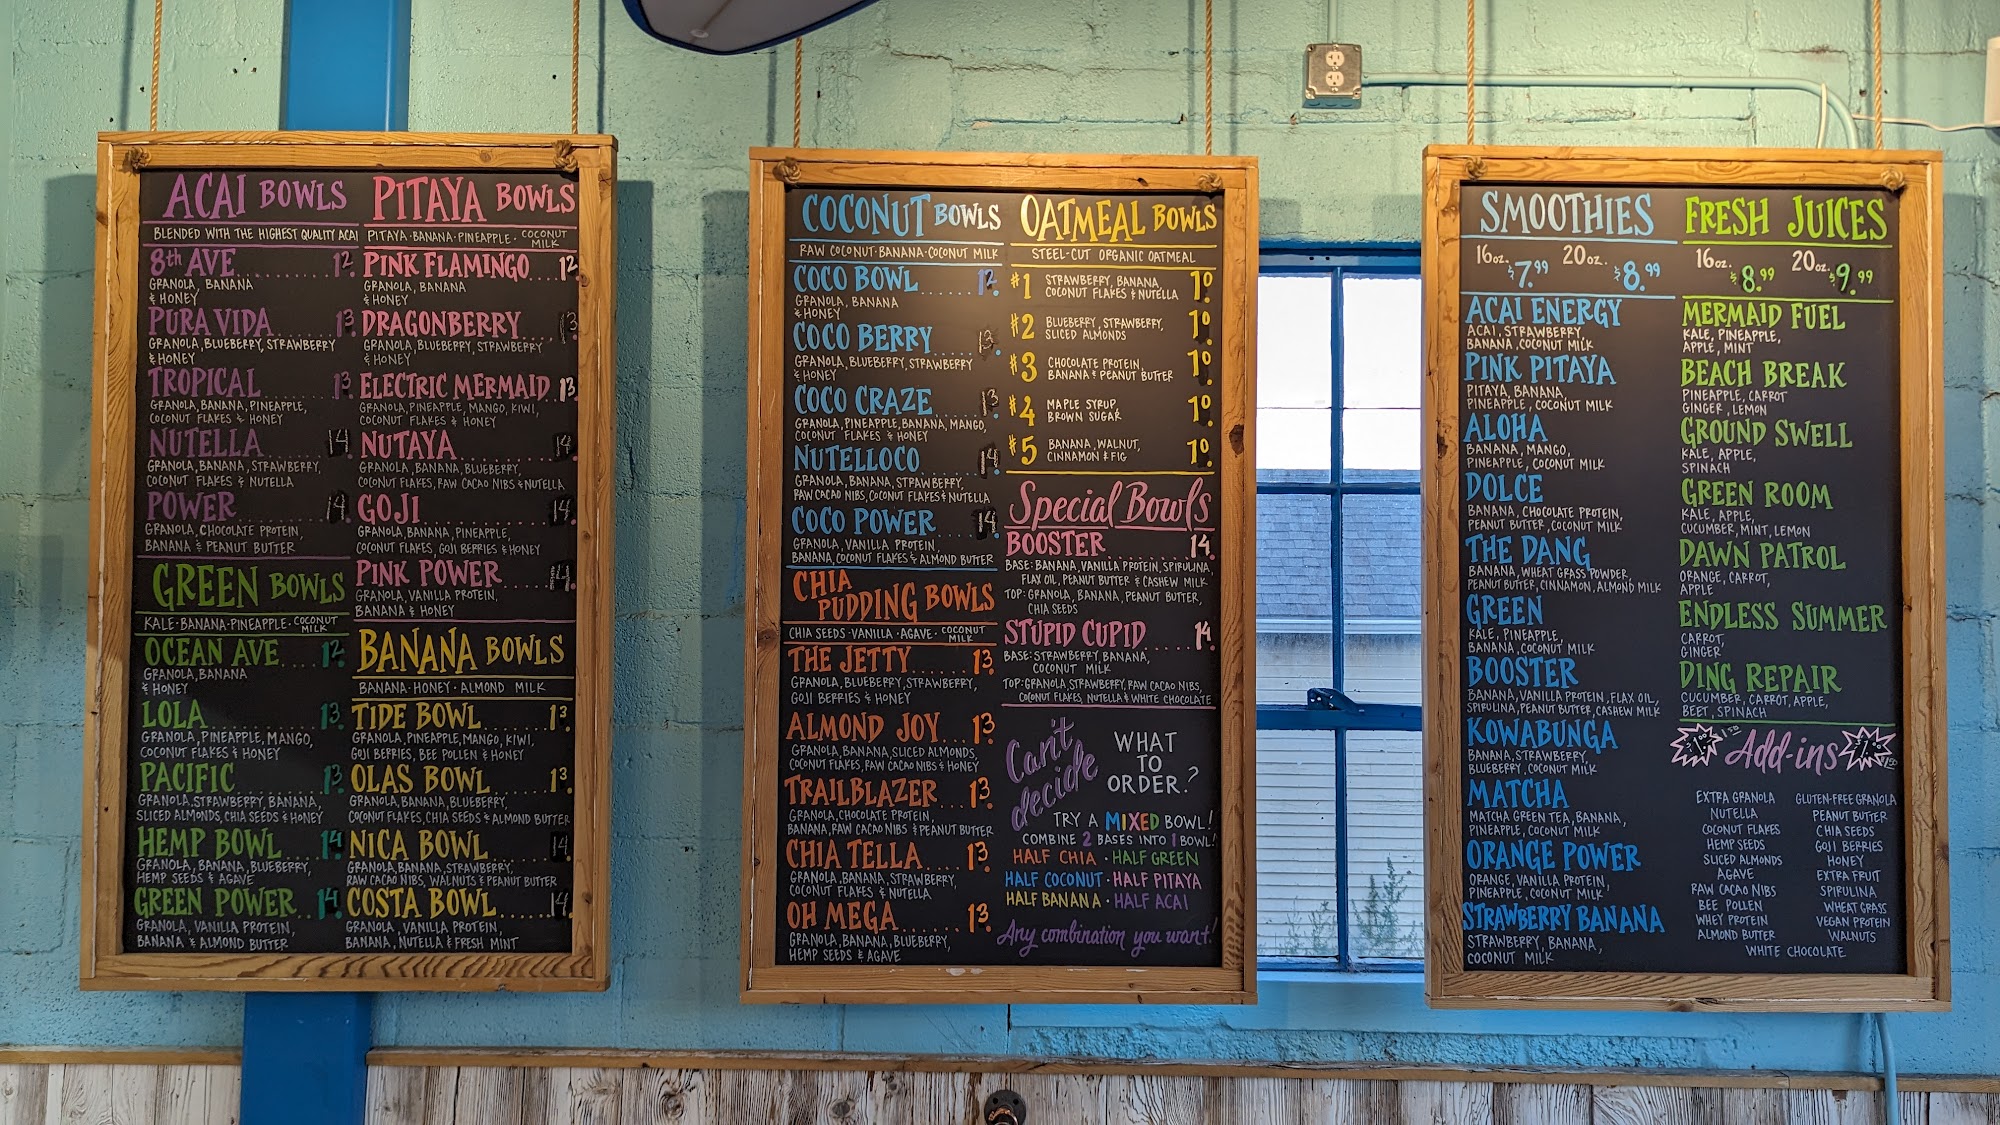 ACAI BOWLS
BLENDED WITH THE HIGHEST QUALITY ACAI
8th AVE........12.
GRANOLA, BANANA
& HONEY
PURA VIDA.....13.
GRANOLA, BLUEBERRY, STRAWBERRY
& HONEY
TROPICAL.....13.
GRANOLA, BANANA, PINEAPPLE,
COCONUT FLAKES & HONEY
NUTELLA......14.
GRANOLA, BANANA, STRAWBERRY,
COCONUT FLAKES & NUTELLA
POWER......14.
GRANOLA, CHOCOLATE PROTEIN,
BANANA & PEANUT BUTTER
GREEN BOWLS
KALE·BANANA·PINEAPPLE·COCONUT MILK
OCEAN AVE....12.
GRANOLA, BANANA
& HONEY
LOLA.........13.
GRANOLA, PINEAPPLE, MANGO,
COCONUT FLAKES & HONEY
PACIFIC......13.
GRANOLA, STRAWBERRY, BANANA,
SLICED ALMONDS, CHIA SEEDS & HONEY
HEMP BOWL....14.
GRANOLA, BANANA, BLUEBERRY,
HEMP SEEDS & AGAVE
GREEN POWER..14.
GRANOLA, VANILLA PROTEIN,
BANANA & ALMOND BUTTER
PITAYA BOWLS
PITAYA·BANANA·PINEAPPLE·COCONUT MILK
PINK FLAMINGO...12.
GRANOLA, BANANA
& HONEY
DRAGONBERRY....13.
GRANOLA, BLUEBERRY, STRAWBERRY
& HONEY
ELECTRIC MERMAID.13.
GRANOLA, PINEAPPLE, MANGO, KIWI,
COCONUT FLAKES & HONEY
NUTAYA.........14.
GRANOLA, BANANA, BLUEBERRY,
COCONUT FLAKES, RAW CACAO NIBS & NUTELLA
GOJI...........14.
GRANOLA, BANANA, PINEAPPLE,
COCONUT FLAKES, GOJI BERRIES & HONEY
PINK POWER.....14.
GRANOLA, VANILLA PROTEIN,
BANANA & HONEY
BANANA BOWLS
BANANA·HONEY·ALMOND MILK
TIDE BOWL......13.
GRANOLA, PINEAPPLE, MANGO, KIWI,
GOJI BERRIES, BEE POLLEN & HONEY
OLAS BOWL......13.
GRANOLA, BANANA, BLUEBERRY,
COCONUT FLAKES, CHIA SEEDS & ALMOND BUTTER
NICA BOWL......14.
GRANOLA, BANANA, STRAWBERRY,
RAW CACAO NIBS, WALNUTS & PEANUT BUTTER
COSTA BOWL.....14.
GRANOLA, VANILLA PROTEIN,
BANANA, NUTELLA & FRESH MINT
COCONUT BOWLS
RAW COCONUT·BANANA·COCONUT MILK
COCO BOWL.....12.
GRANOLA, BANANA
& HONEY
COCO BERRY....13.
GRANOLA, BLUEBERRY, STRAWBERRY
& HONEY
COCO CRAZE....13.
GRANOLA, PINEAPPLE, BANANA, MANGO,
COCONUT FLAKES & HONEY
NUTELLOCO.....14.
GRANOLA, BANANA, STRAWBERRY,
RAW CACAO NIBS, COCONUT FLAKES & NUTELLA
COCO POWER....14.
GRANOLA, VANILLA PROTEIN,
BANANA, COCONUT FLAKES & ALMOND BUTTER
CHIA PUDDING BOWLS
CHIA SEEDS·VANILLA·AGAVE·COCONUT MILK
THE JETTY.....13.
GRANOLA, BLUEBERRY, STRAWBERRY,
GOJI BERRIES & HONEY
ALMOND JOY....13.
GRANOLA, BANANA, SLICED ALMONDS,
COCONUT FLAKES, RAW CACAO NIBS & HONEY
TRAILBLAZER...13.
GRANOLA, CHOCOLATE PROTEIN,
BANANA, RAW CACAO NIBS & PEANUT BUTTER
CHIA TELLA....13.
GRANOLA, BANANA, STRAWBERRY,
COCONUT FLAKES & NUTELLA
OH MEGA.......13.
GRANOLA, BANANA, BLUEBERRY,
HEMP SEEDS & AGAVE
OATMEAL BOWLS
STEEL-CUT ORGANIC OATMEAL
#1 STRAWBERRY, BANANA, 10.
COCONUT FLAKES & NUTELLA
#2 BLUEBERRY, STRAWBERRY, 10.
SLICED ALMONDS
#3 CHOCOLATE PROTEIN, 10.
BANANA & PEANUT BUTTER
#4 MAPLE SYRUP, 10.
BROWN SUGAR
#5 BANANA, WALNUT, 10.
CINNAMON & FIG
Special Bowls
BOOSTER........14.
BASE: BANANA, VANILLA PROTEIN, SPIRULINA,
FLAX OIL, PEANUT BUTTER & CASHEW MILK
TOP: GRANOLA, BANANA, PEANUT BUTTER,
CHIA SEEDS
STUPID CUPID.....14.
BASE: STRAWBERRY, BANANA,
COCONUT MILK
TOP: GRANOLA, STRAWBERRY, RAW CACAO NIBS,
COCONUT FLAKES, NUTELLA & WHITE CHOCOLATE
Can't decide
WHAT
TO
ORDER?
TRY A MIXED BOWL!
COMBINE 2 BASES INTO 1 BOWL!
HALF CHIA · HALF GREEN
HALF COCONUT · HALF PITAYA
HALF BANANA · HALF ACAI
Any combination you want!
SMOOTHIES
16oz. $7.99 20oz. $8.99
ACAI ENERGY
ACAI, STRAWBERRY
BANANA, COCONUT MILK
PINK PITAYA
PITAYA, BANANA,
PINEAPPLE, COCONUT MILK
ALOHA
BANANA, MANGO,
PINEAPPLE, COCONUT MILK
DOLCE
BANANA, CHOCOLATE PROTEIN,
PEANUT BUTTER, COCONUT MILK
THE DANG
BANANA, WHEAT GRASS POWDER,
PEANUT BUTTER, CINNAMON, ALMOND MILK
GREEN
KALE, PINEAPPLE,
BANANA, COCONUT MILK
BOOSTER
BANANA, VANILLA PROTEIN, FLAX OIL,
SPIRULINA, PEANUT BUTTER, CASHEW MILK
KOWABUNGA
BANANA, STRAWBERRY,
BLUEBERRY, COCONUT MILK
MATCHA
MATCHA GREEN TEA, BANANA,
PINEAPPLE, COCONUT MILK
ORANGE POWER
ORANGE, VANILLA PROTEIN,
PINEAPPLE, COCONUT MILK
STRAWBERRY BANANA
STRAWBERRY, BANANA,
COCONUT MILK
FRESH JUICES
16oz. $8.99 20oz. $9.99
MERMAID FUEL
KALE, PINEAPPLE,
APPLE, MINT
BEACH BREAK
PINEAPPLE, CARROT
GINGER, LEMON
GROUND SWELL
KALE, APPLE,
SPINACH
GREEN ROOM
KALE, APPLE,
CUCUMBER, MINT, LEMON
DAWN PATROL
ORANGE, CARROT,
APPLE
ENDLESS SUMMER
CARROT,
GINGER
DING REPAIR
CUCUMBER, CARROT, APPLE,
BEET, SPINACH
Add-ins
EXTRA GRANOLA
NUTELLA
COCONUT FLAKES
HEMP SEEDS
SLICED ALMONDS
AGAVE
RAW CACAO NIBS
BEE POLLEN
WHEY PROTEIN
ALMOND BUTTER
GLUTEN-FREE GRANOLA
PEANUT BUTTER
CHIA SEEDS
GOJI BERRIES
HONEY
EXTRA FRUIT
SPIRULINA
WHEAT GRASS
VEGAN PROTEIN
WALNUTS
WHITE CHOCOLATE